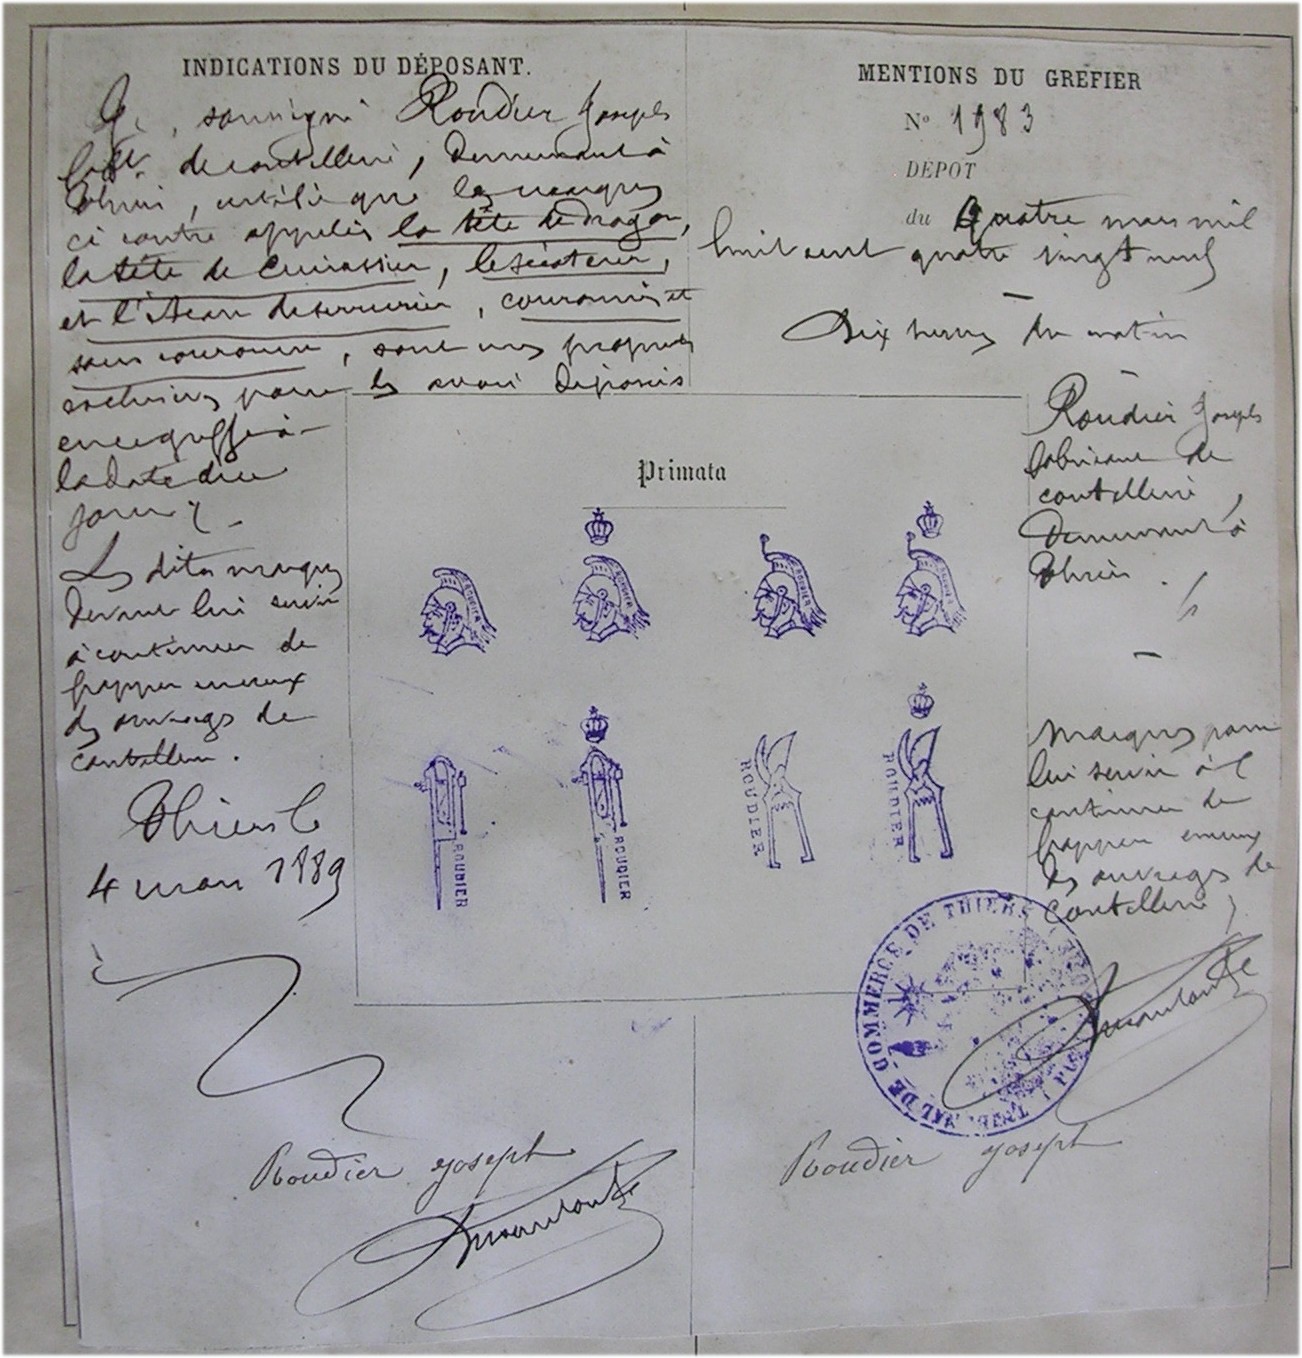 INDICATIONS DU DÉPOSANT.
Je, soussigné Roudier Joseph
fabt. de coutellerie, demeurant à
Thiers, certifie que les marques
ci contre appelés la tête de dragon,
la tête de cuirassier, le sécateur,
et l'étau de serrurier, couronnés et
sans couronne, sont mes propriétés
exclusives pour les avoir déposés
en ce greffe à
la date de ce
jour
Les dites marques
devant lui servir
à continuer de
frapper
des ouvrages de
coutellerie.
Thiers le
4 mars 1889
Roudier Joseph
MENTIONS DU GREFIER
N° 1983
DÉPOT
du Quatre mars mil
huit cent quatre vingt neuf
Dix heures du matin
Roudier Joseph
fabricant de
coutellerie,
Demeurant à
Thiers.
Marques pour
lui servir à
continuer de
frapper
des ouvrages de
coutellerie
Roudier Joseph
Primata
ROUDIER
ROUDIER
ROUDIER
ROUDIER
ROUDIER
ROUDIER
ROUDIER
ROUDIER
TRIBUNAL DE COMMERCE DE THIERS